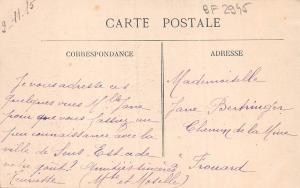 9-11-15
BF 2945
CARTE POSTALE
CORRESPONDANCE
ADRESSE
Je vous adresse ces
quelques vues Mlle Jane
pour que vous fassiez un
peu connaissance avec la
ville de Sens. Est-ce de
votre goût? Amitiés sincères
Mademoiselle
Jane Bertringer
Chemin de la Mine
Frouard
(Mthe et Moselle)